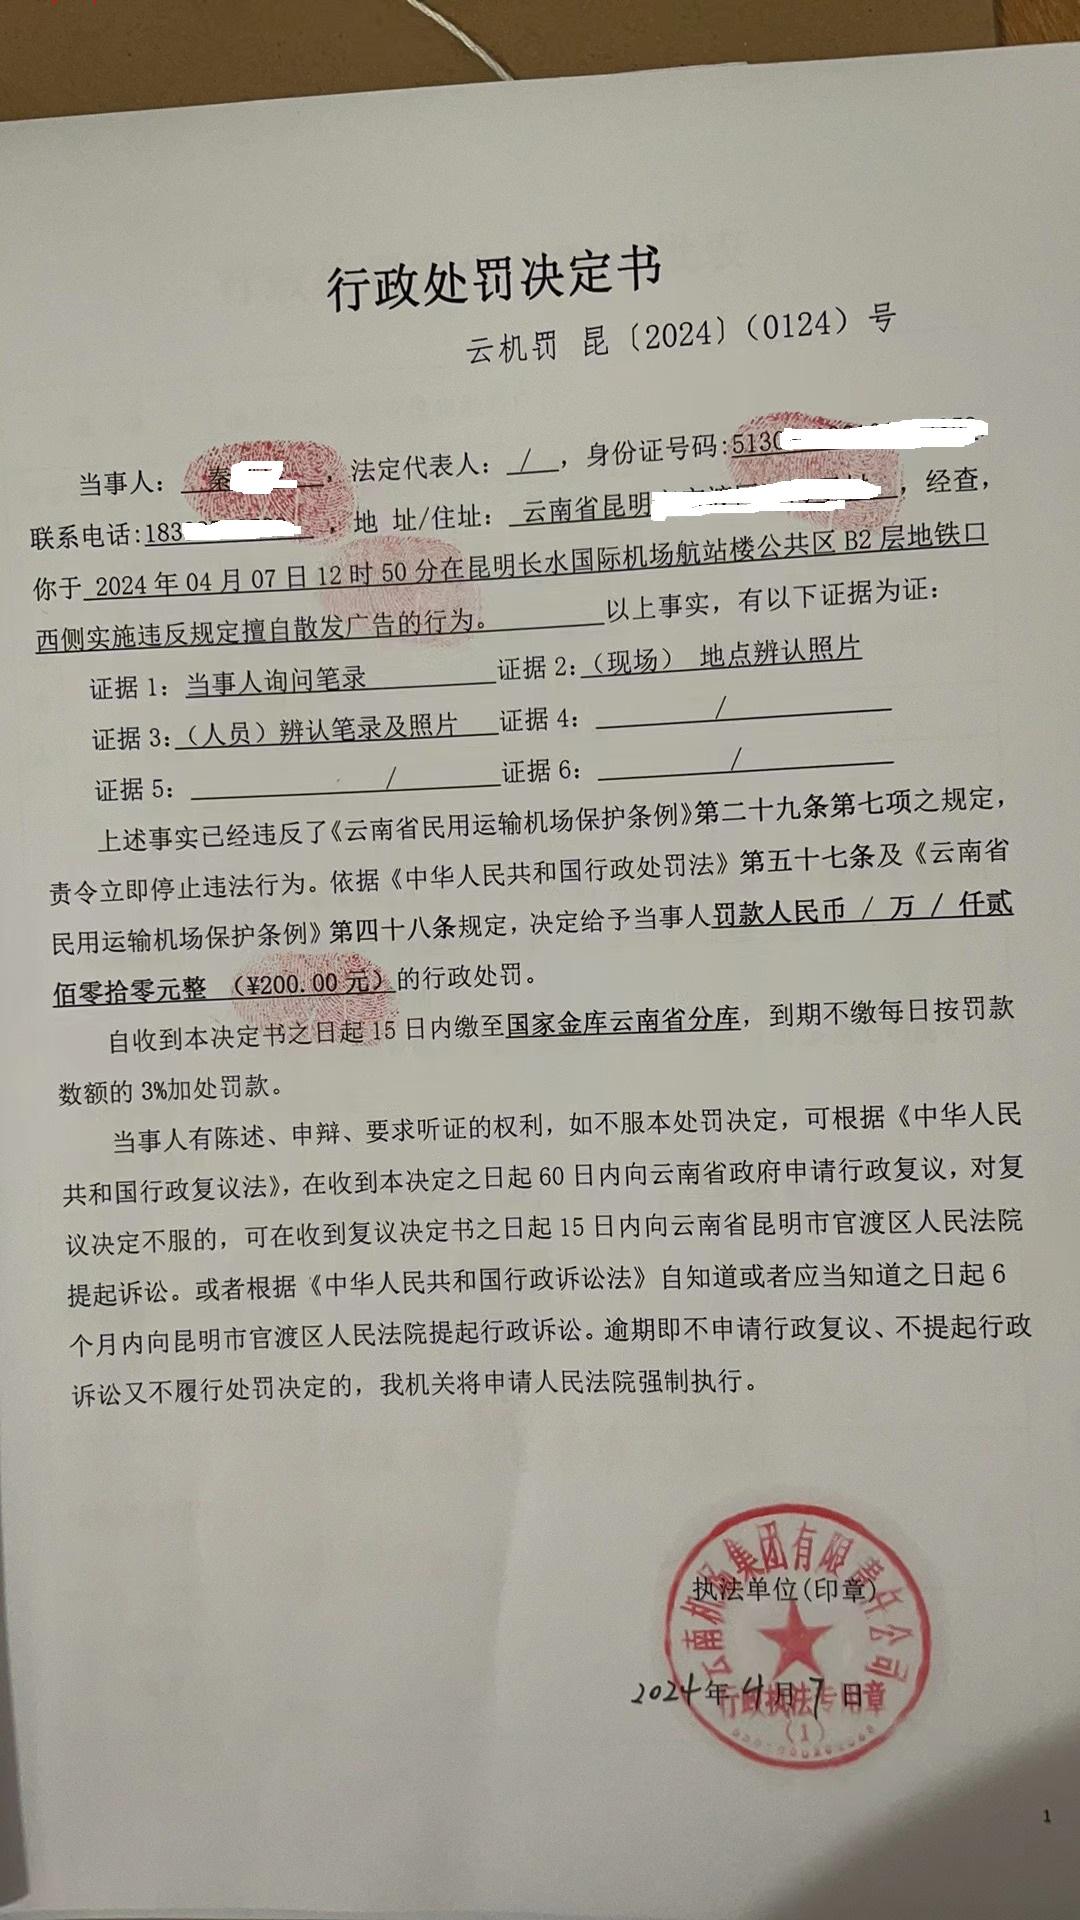 行政处罚决定书
云机罚 昆〔2024〕（0124）号
当事人： 秦 ，法定代表人： / ，身份证号码:5130
联系电话:183 ，地 址/住址： 云南省昆明 ，经查，
你于 2024 年 04 月 07 日 12 时 50 分在昆明长水国际机场航站楼公共区 B2 层地铁口
西侧实施违反规定擅自散发广告的行为。 以上事实，有以下证据为证：
证据 1: 当事人询问笔录 证据 2:（现场） 地点辨认照片
证据 3:（人员）辨认笔录及照片 证据 4: /
证据 5: / 证据 6: /
上述事实已经违反了《云南省民用运输机场保护条例》第二十九条第七项之规定，
责令立即停止违法行为。依据《中华人民共和国行政处罚法》第五十七条及《云南省
民用运输机场保护条例》第四十八条规定，决定给予当事人罚款人民币 / 万 / 仟贰
佰零拾零元整 （¥200.00 元）的行政处罚。
自收到本决定书之日起 15 日内缴至国家金库云南省分库，到期不缴每日按罚款
数额的 3%加处罚款。
当事人有陈述、申辩、要求听证的权利，如不服本处罚决定，可根据《中华人民
共和国行政复议法》，在收到本决定之日起 60 日内向云南省政府申请行政复议，对复
议决定不服的，可在收到复议决定书之日起 15 日内向云南省昆明市官渡区人民法院
提起诉讼。或者根据《中华人民共和国行政诉讼法》自知道或者应当知道之日起 6
个月内向昆明市官渡区人民法院提起行政诉讼。逾期即不申请行政复议、不提起行政
诉讼又不履行处罚决定的，我机关将申请人民法院强制执行。
云南机场集团有限责任公司
执法单位(印章)
2024年4月7日
行政执法专用章
(1)
1